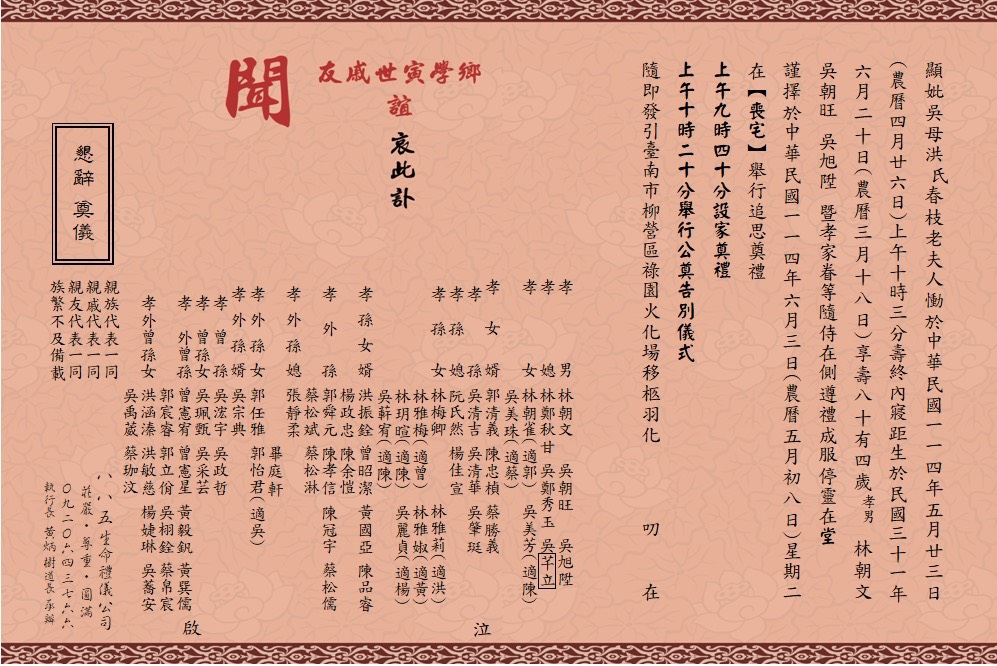 顯妣吳母洪氏春枝老夫人慟於中華民國一一四年五月廿三日
(農曆四月廿六日)上午十時三分壽終內寢距生於民國三十一年
六月二十日(農曆三月十八日)享壽八十有四歲孝男 林朝文
吳朝旺 吳旭陞 暨孝家眷等隨侍在側遵禮成服停靈在堂
謹擇於中華民國一一四年六月三日(農曆五月初八日)星期二
在【喪宅】舉行追思奠禮
上午九時四十分設家奠禮
上午十時二十分舉行公奠告別儀式
隨即發引臺南市柳營區祿園火化場移柩羽化
叨 在
鄉學寅世戚友
誼
聞
哀此訃
孝男 林朝文 吳朝旺 吳旭陞
孝媳 林鄭秋甘 吳鄭秀玉 吳芊立
孝女 林朝雀(適郭) 吳美芳(適陳)
吳美珠(適蔡)
孝女婿 郭清義 陳忠楨 蔡勝義
孝孫 吳清吉 吳清華 吳肇珽
孝孫媳 阮氏然 楊佳宣
孝孫女 林梅卿 林雅莉(適洪)
林雅梅(適曾) 林雅婌(適黃)
林玥暄(適陳) 吳麗貞(適楊)
吳蘚宥(適陳)
孝孫女婿 洪振銓 曾昭潔 黃國亞 陳品睿
楊政忠 陳余愷
孝外孫 郭舜元 陳孝信 陳冠宇 蔡松儒
蔡松斌 蔡松淋
孝外孫媳 張靜柔 畢庭軒
孝外孫女 郭任雅 郭怡君(適吳)
孝外孫婿 吳宗典
孝曾孫 吳浤宇 吳政哲
孝曾孫女 吳珮甄 吳采芸
孝外曾孫 曾憲宥 曾憲星 黃毅釩 黃巽儒
郭宸睿 郭立俏 吳栩銓 蔡帛宸
孝外曾孫女 洪涵溱 洪敏慈 楊婕琳 吳蕎安
吳禹葳 蔡珈汶
泣 啟
親族代表一同
親戚代表一同
親友代表一同
族繁不及備載
懇辭 奠儀
八八五生命禮儀公司
莊嚴·尊重·圓滿
〇九二〇六六四三七六六
執行長 黃炳樹道長 承辦